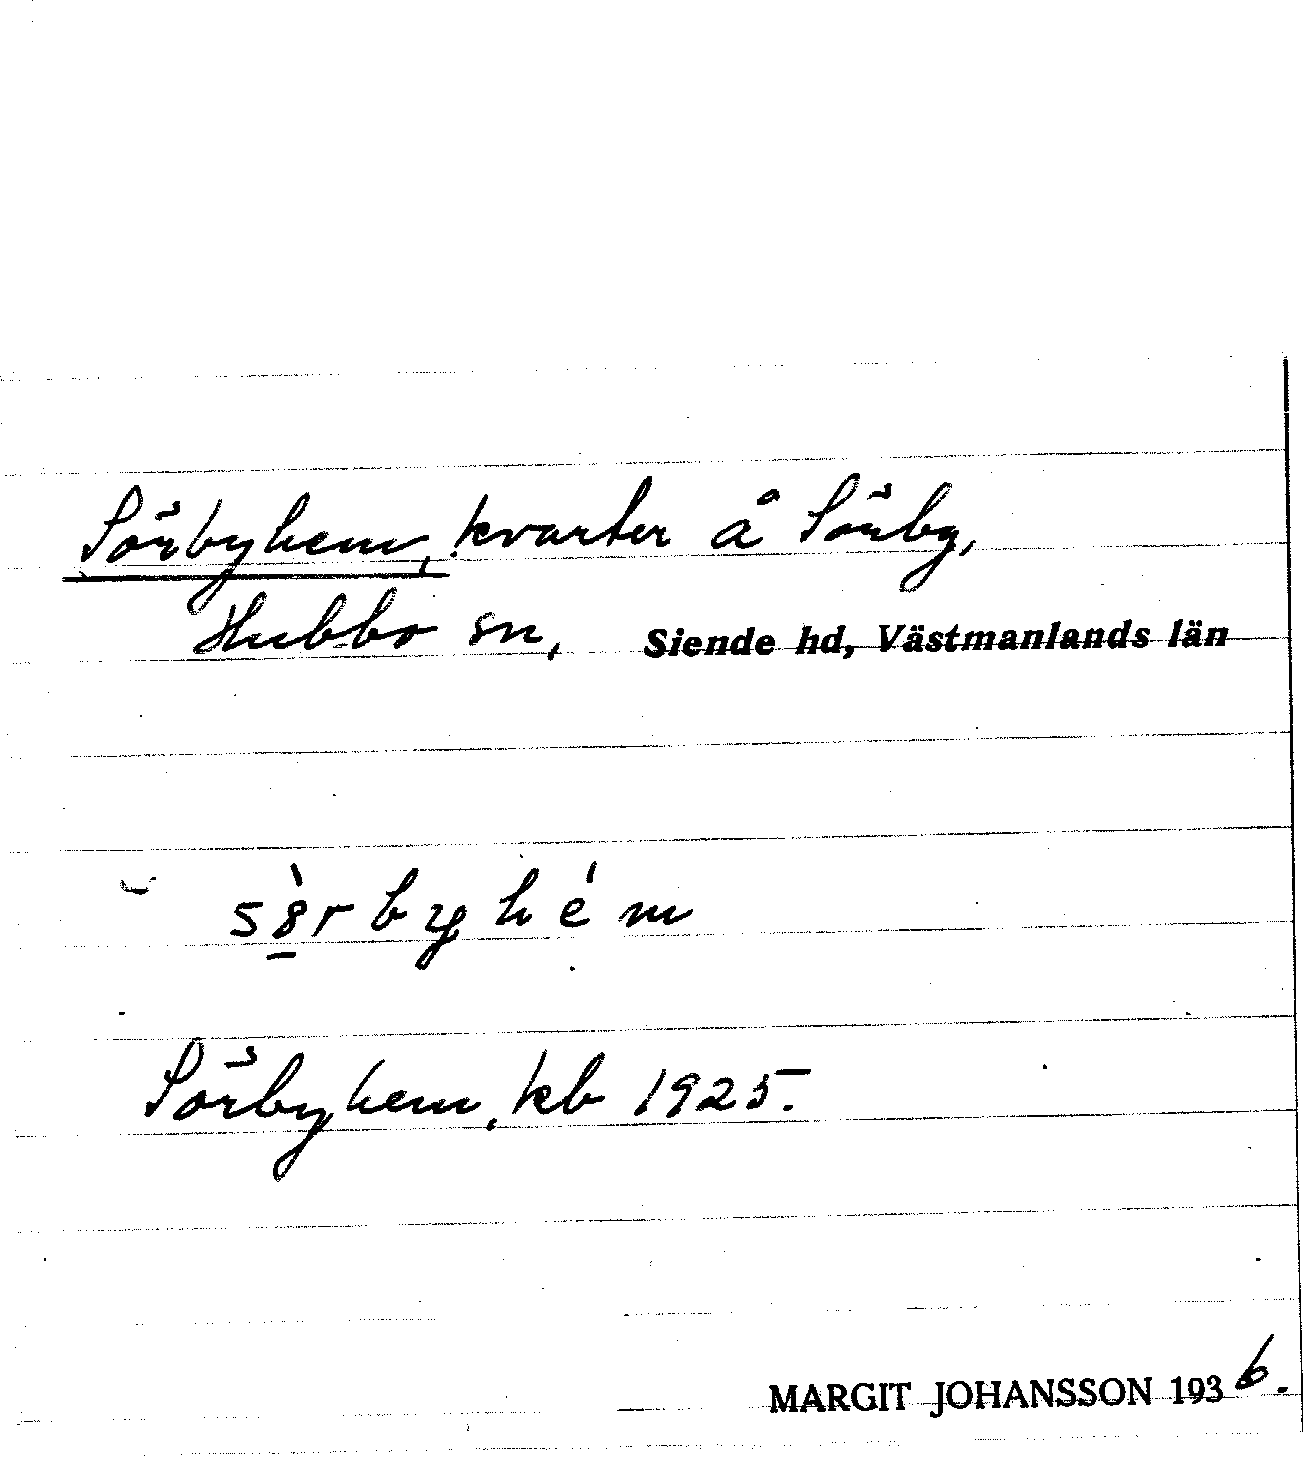 Sörbyhem, kvarter å Sörby,
Hubbo sn, Siende hd, Västmanlands län
s8̲̀rbyhém
Sörbyhem, kb 1925.
MARGIT JOHANSSON 1936.